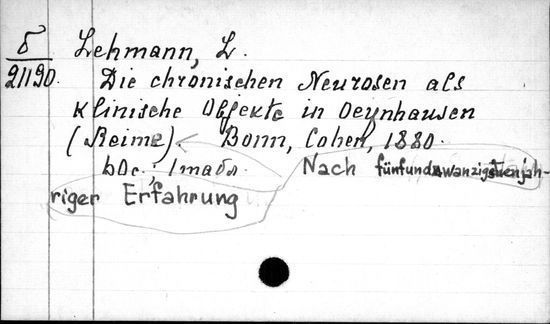 б
21190.
Lehmann, L.
Die chronischen Neurosen als
klinische Objekte in Oeynhausen
(Reime) Bonn, Cohen, 1880.
Nach fünfundzwanzigstenjäh-
riger Erfahrung